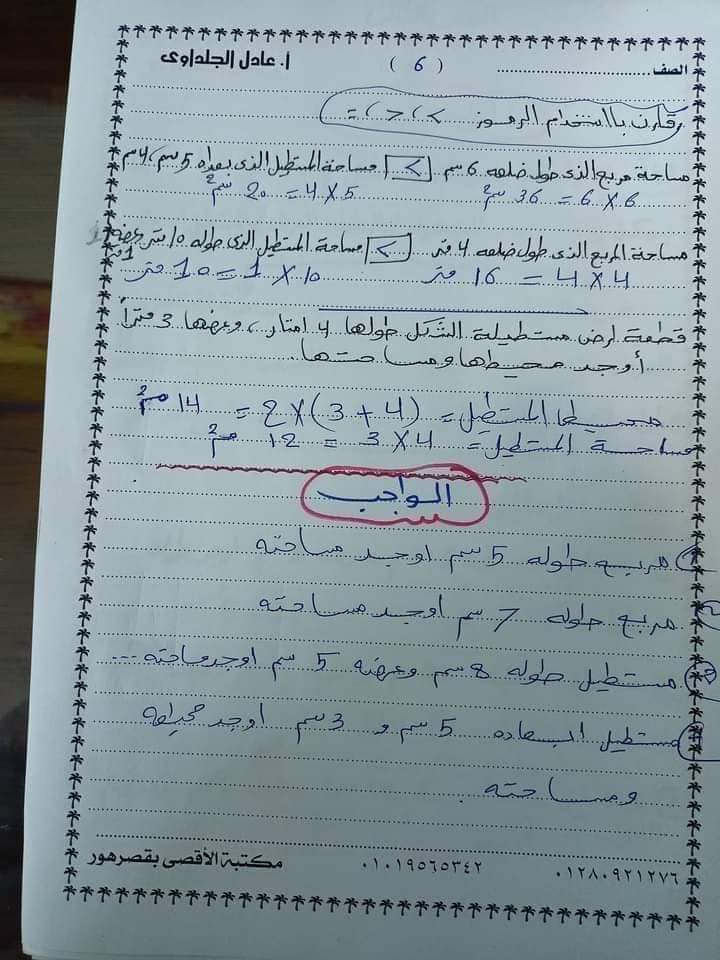 الصف ........................ ( 6 ) أ. عادل الجلداوى
قارن بااستخدام الرموز > ، < ، =
مساحة مربع الذى طول ضلعه 6 سم [ > ] مساحة المستطيل الذى بعداه 5 سم ، 4 سم
6 × 6 = 36 سم² 5 × 4 = 20 سم²
مساحة المربع الذى طول ضلعه 4 متر [ > ] مساحة المستطيل الذى طوله 10 متر وعرضه 1 متر
4 × 4 = 16 متر 10 × 1 = 10 متر
قطعة ارض مستطيلة الشكل طولها 4 امتار ، وعرضها 3 متراً
أوجد محيطها ومساحتها
محيط المستطيل = (4 + 3) × 2 = 14 م²
مساحة المستطيل = 4 × 3 = 12 م²
الواجب
1 مربع طوله 5 سم اوجد مساحته
2 مربع طوله 7 سم اوجد مساحته
3 مستطيل طوله 8 سم وعرضه 5 سم اوجد مساحته ...
4 مستطيل ابعاده 5 سم و 3 سم اوجد محيطه
ومساحته
٠١٢٨٠٩٢١٢٧٦ ٠١٠١٩٥٦٥٣٤٢ مكتبة الأقصى بقصرهور